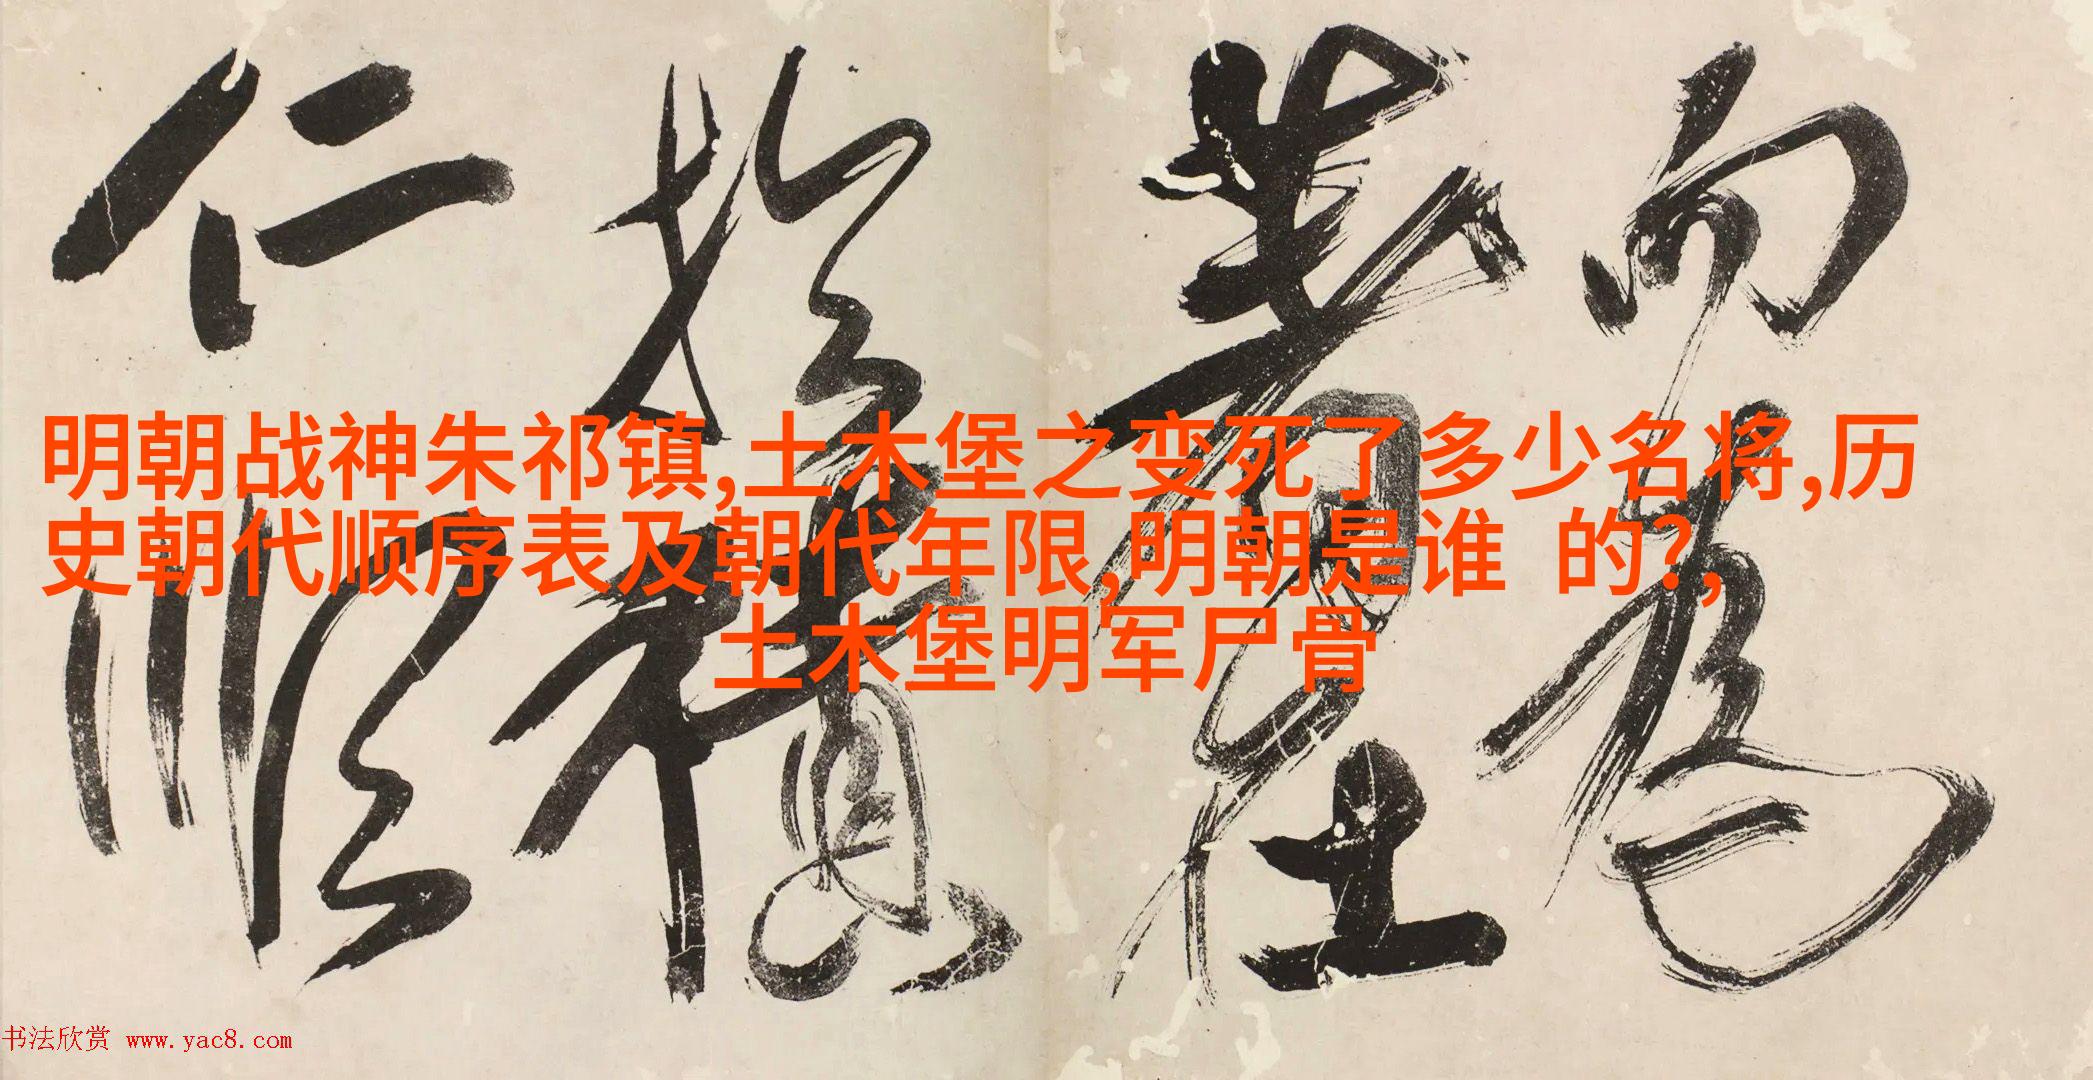 明朝战神朱祁镇,土木堡之变死了多少名将,历
史朝代顺序表及朝代年限,明朝是谁 的?,
土木堡明军尸骨
而为
著在
於積
仁順
书法欣赏 www.yac8.com